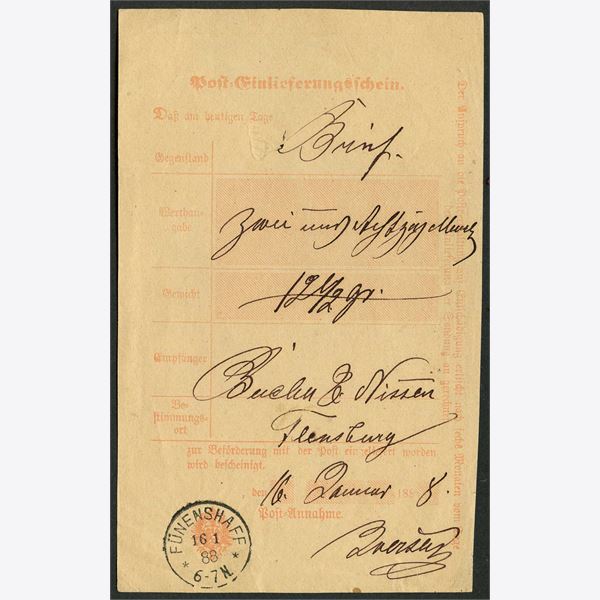 Post-Einlieferungsschein.
Daß am heutigen Tage
Gegenstand
Brief.
Werthan-
gabe
zwei und Achtzig Mark
Gewicht
12 1/2 gr.
Empfänger
& Nissen
Be-
stimmungs-
ort
Flensburg
zur Beförderung mit der Post eingeliefert worden
wird bescheinigt.
, den 16. Januar 188 8.
Post-Annahme.
FÜNENSHAFF
16 1
88
* 6-7N. *